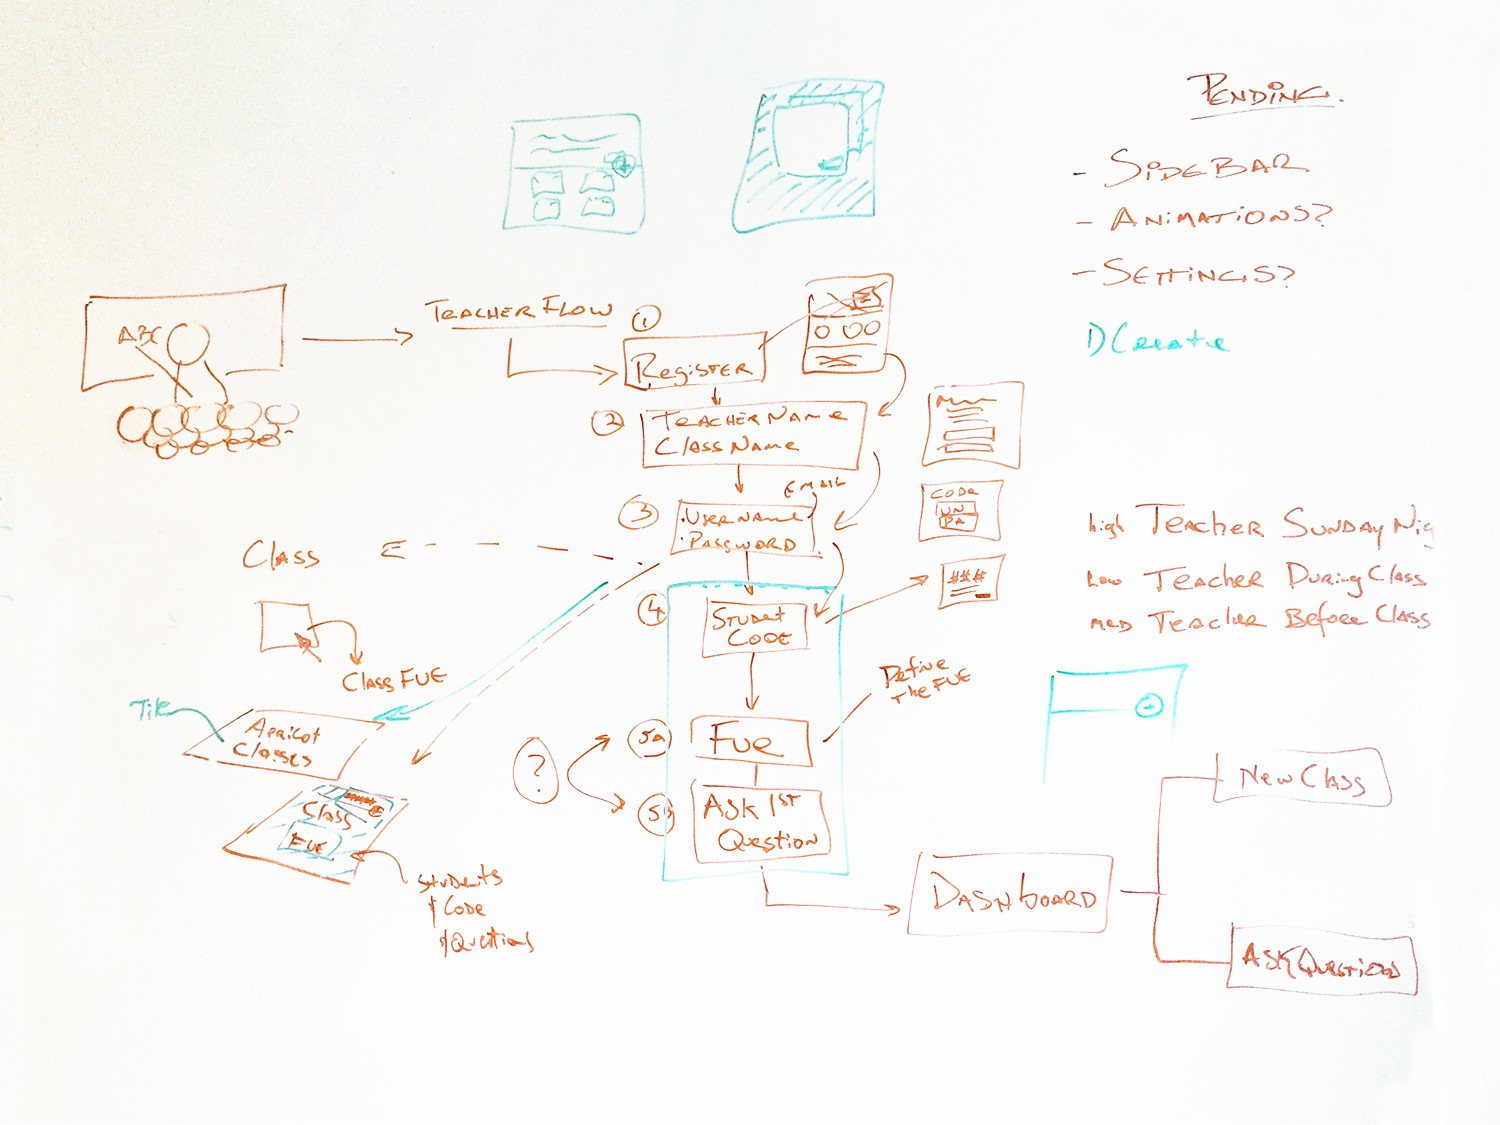 PENDING.
- SIDEBAR
- ANIMATIONS?
- SETTINGS?
DCreate
ABC
TEACHER FLOW
1
REGISTER
2
TEACHER NAME
Class NAME
3
EMAIL
·USERNAME
·PASSWORD
CODE
UN
PA
###
high TEACHER SUNDAY Nig
low TEACHER DURING CLASS
MED TEACHER Before CLASS
4
STUDENT
CODE
Class
Class FUE
Define
THE FUE
Tile
Apricot
Classes
Class
FUE
Students
Code
Questions
?
5A
FUE
5B
ASK 1ST
Question
DASHBOARD
NEW CLASS
ASK QUESTIONS